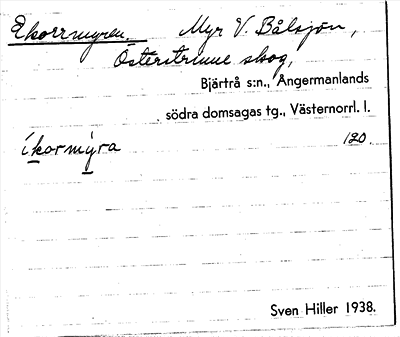 Ekorrmyren. Myr V. Bålsjön,
Österstrinne skog,
Bjärtrå s:n., Ångermanlands
södra domsagas tg., Västernorrl. l.
íkormýra 120.
Sven Hiller 1938.